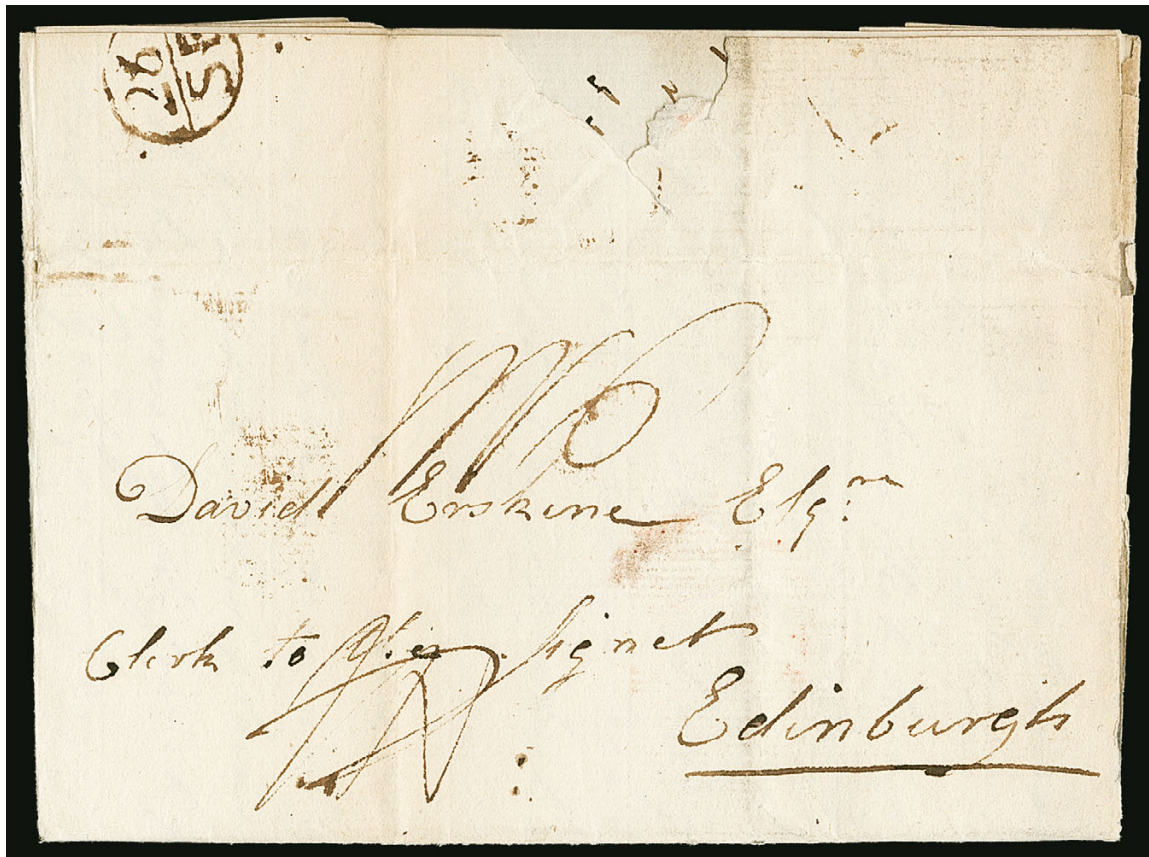 28
SE
David Erskine Esq.re
Clerk to the Signet
Edinburgh